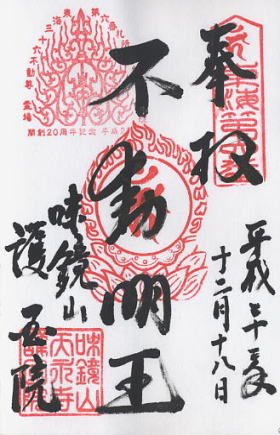 奉拝
平成二十三年
十二月十八日
不動明王
味鏡山
護国院
東海三十六不動尊霊場
第六番札所
開創20周年記念 平成2
味鏡山
天永寺
護国院